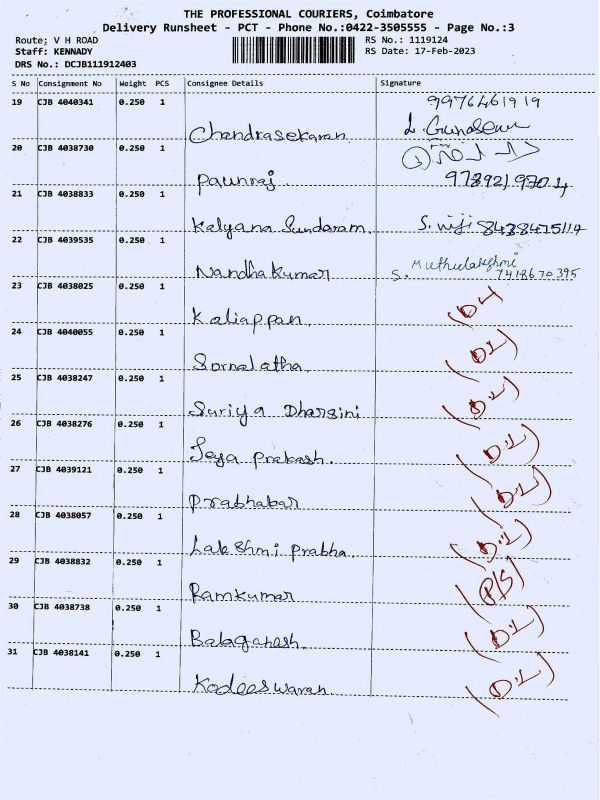 THE PROFESSIONAL COURIERS, Coimbatore
Delivery Runsheet - PCT - Phone No.:0422-3505555 - Page No.:3
Route; V H ROAD
RS No.: 1119124
Staff: KENNADY
RS Date: 17-Feb-2023
DRS No.: DCJB111912403
S No Consignment No Weight PCS Consignee Details Signature
19 CJB 4040341 0.250 1 Chandrasekaran 9976461919
20 CJB 4038730 0.250 1 Paunraj
21 CJB 4038833 0.250 1 Kalyana Sundaram. S. Viji 8438475114
22 CJB 4039535 0.250 1 Nandhakumar S. Muthulakshmi 7418670395
23 CJB 4038025 0.250 1 Kaliappan.
24 CJB 4040055 0.250 1 Sornalatha (DL)
25 CJB 4038247 0.250 1 Suriya Dharsini (DL)
26 CJB 4038276 0.250 1 Jeya prakash. (DL)
27 CJB 4039121 0.250 1 Prabhakar (DL)
28 CJB 4038057 0.250 1 Lakshmi Prabha. (DL)
29 CJB 4038832 0.250 1 Ramkumar (P/S)
30 CJB 4038738 0.250 1 Balaganesh. (DL)
31 CJB 4038141 0.250 1 Kodeeswaran (DL)